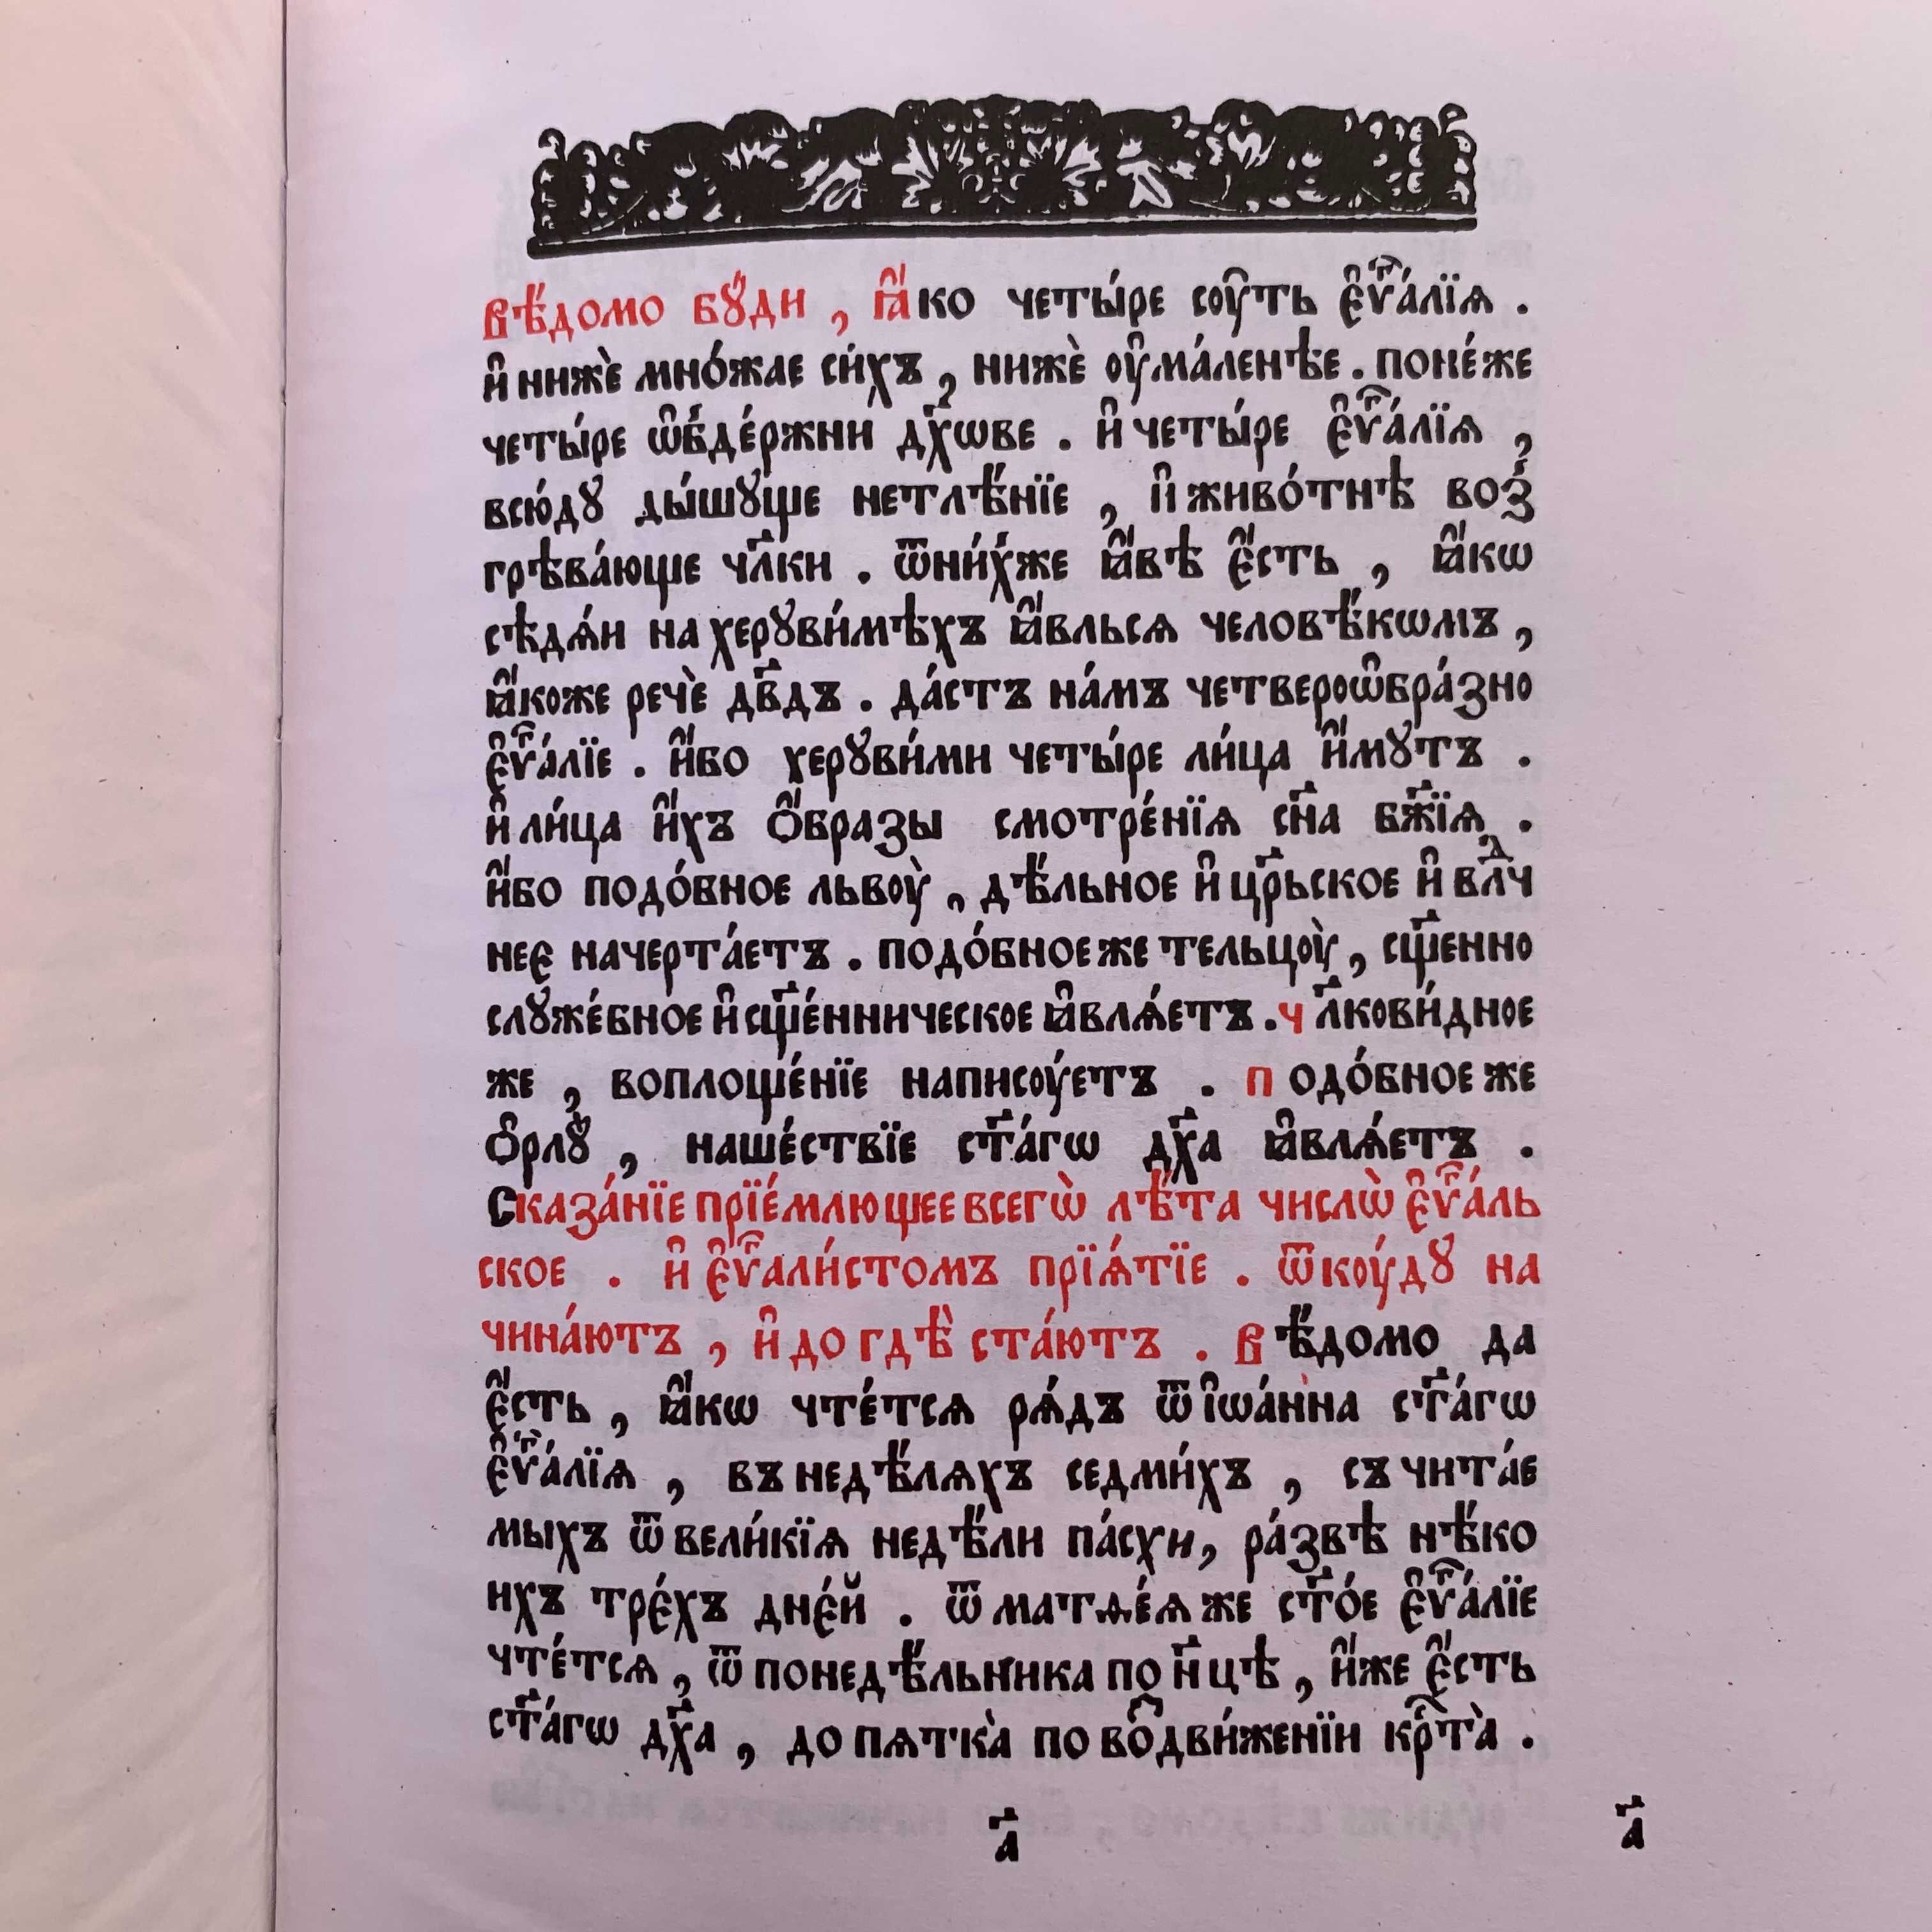 вѣ́домо бꙋ́ди , ꙗ҆́ко четы́ре сꙋ́ть є҆ѵⷢ҇а́лїѧ .
и҆ нижѐ мно́жае си́хъ , нижѐ ᲂу҆ма́ленѣе . поне́же
четы́ре ѡ҆бде́ржни дх҃ове . и҆ четы́ре є҆ѵⷢ҇а́лїѧ ,
всю́дꙋ ды́шꙋще нетлѣ́нїе , и҆ живо́тнѣ воз̾
грѣва́юще чл҃ки . ѿни́хже ꙗ҆́вѣ є҆́сть , ꙗ҆́кѡ
сѣдѧ́и на херꙋви́мѣхъ ꙗ҆́вльсѧ человѣ́кѡмъ ,
ꙗ҆́коже речѐ дв҃дъ . да́стъ на́мъ четвероѡ҆бра́зно
є҆ѵⷢ҇а́лїе . и҆́бо херꙋви́ми четы́ре ли́ца и҆́мꙋтъ .
и҆ ли́ца и҆́хъ ѻ҆́бразы смотре́нїѧ сн҃а бж҃їѧ .
и҆́бо подо́бное львᲂу̀ , дѣ́льное и҆ цр҃ьское и҆ влⷣч
неє начерта́етъ . подо́бное же тельцᲂу̀ , сщ҃енно
слꙋже́бное и҆ сщ҃е́нническое ꙗ҆влѧ́етъ . чл҃кови́дное
же , воплоще́нїе написᲂу́етъ . подо́бное же
ѻ҆рлꙋ̀ , наше́ствїе ст҃а́гѡ дх҃а ꙗ҆влѧ́етъ .
Сказа́нїе прїе́млющее всегѡ̀ лѣ́та числѡ̀ є҆ѵⷢ҇а́ль
ское . и҆ є҆ѵⷢ҇али́стомъ прїѧ́тїе . ѿкᲂу́дꙋ на
чина́ютъ , и҆ до гдѣ̀ ста́ютъ . вѣ́домо да
є҆́сть , ꙗ҆́кѡ чте́тсѧ рѧ́дъ ѿ і҆ѡа́нна ст҃а́гѡ
є҆ѵⷢ҇а́лїѧ , въ недѣ́лѧхъ седми́хъ , съ чита́е
мыхъ ѿ вели́кїѧ недѣ́ли па́схи , ра́звѣ нѣ́ко
ихъ тре́хъ дне́й . ѿ матѳе́ѧ же ст҃о́е є҆ѵⷢ҇а́лїе
чте́тсѧ , ѿ понедѣ́льника по н҃цѣ , и҆́же є҆́сть
ст҃а́гѡ дх҃а , до пѧтка̀ по воⷥдви́женїи крⷭ҇та̀ .
а҃ а҃